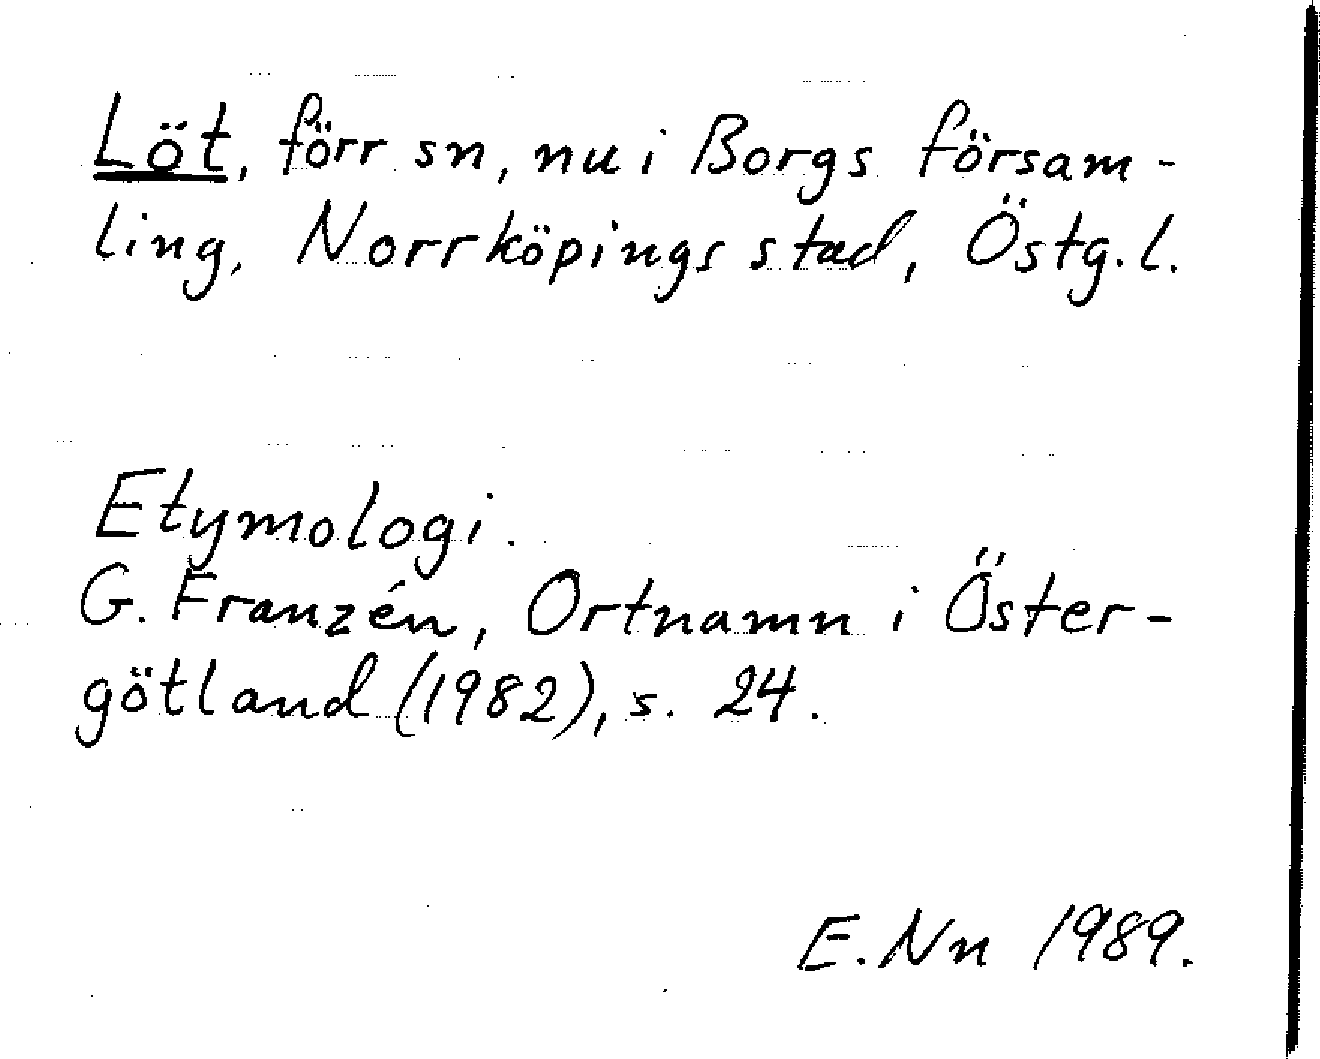 Löt, förr sn, nu i Borgs försam-
ling, Norrköpings stad, Östg.l.
Etymologi.
G. Franzén, Ortnamn i Öster-
götland (1982), s. 24.
E. Nn 1989.